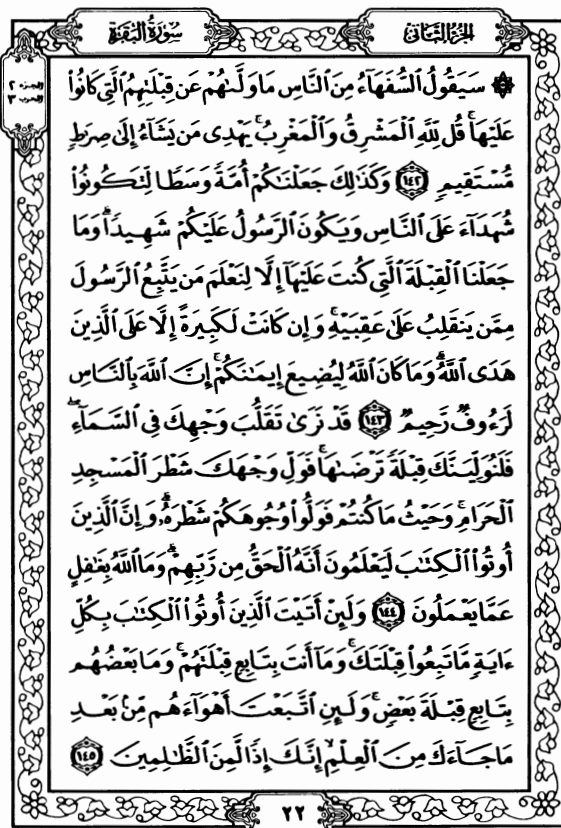 الجزء الثاني
سورة البقرة
الجزء ٢
الحزب ٣
۞ سَيَقُولُ ٱلسُّفَهَآءُ مِنَ ٱلنَّاسِ مَا وَلَّىٰهُمْ عَن قِبْلَتِهِمُ ٱلَّتِى كَانُوا۟
عَلَيْهَا ۚ قُل لِّلَّهِ ٱلْمَشْرِقُ وَٱلْمَغْرِبُ ۚ يَهْدِى مَن يَشَآءُ إِلَىٰ صِرَٰطٍ
مُّسْتَقِيمٍ ١٤٢ وَكَذَٰلِكَ جَعَلْنَٰكُمْ أُمَّةً وَسَطًا لِّتَكُونُوا۟
شُهَدَآءَ عَلَى ٱلنَّاسِ وَيَكُونَ ٱلرَّسُولُ عَلَيْكُمْ شَهِيدًا ۗ وَمَا
جَعَلْنَا ٱلْقِبْلَةَ ٱلَّتِى كُنتَ عَلَيْهَآ إِلَّا لِنَعْلَمَ مَن يَتَّبِعُ ٱلرَّسُولَ
مِمَّن يَنقَلِبُ عَلَىٰ عَقِبَيْهِ ۚ وَإِن كَانَتْ لَكَبِيرَةً إِلَّا عَلَى ٱلَّذِينَ
هَدَى ٱللَّهُ ۗ وَمَا كَانَ ٱللَّهُ لِيُضِيعَ إِيمَٰنَكُمْ ۚ إِنَّ ٱللَّهَ بِٱلنَّاسِ
لَرَءُوفٌ رَّحِيمٌ ١٤٣ قَدْ نَرَىٰ تَقَلُّبَ وَجْهِكَ فِى ٱلسَّمَآءِ ۖ
فَلَنُوَلِّيَنَّكَ قِبْلَةً تَرْضَىٰهَا ۚ فَوَلِّ وَجْهَكَ شَطْرَ ٱلْمَسْجِدِ
ٱلْحَرَامِ ۚ وَحَيْثُ مَا كُنتُمْ فَوَلُّوا۟ وُجُوهَكُمْ شَطْرَهُۥ ۗ وَإِنَّ ٱلَّذِينَ
أُوتُوا۟ ٱلْكِتَٰبَ لَيَعْلَمُونَ أَنَّهُ ٱلْحَقُّ مِن رَّبِّهِمْ ۗ وَمَا ٱللَّهُ بِغَٰفِلٍ
عَمَّا يَعْمَلُونَ ١٤٤ وَلَئِنْ أَتَيْتَ ٱلَّذِينَ أُوتُوا۟ ٱلْكِتَٰبَ بِكُلِّ
ءَايَةٍ مَّا تَبِعُوا۟ قِبْلَتَكَ ۚ وَمَآ أَنتَ بِتَابِعٍ قِبْلَتَهُمْ ۚ وَمَا بَعْضُهُم
بِتَابِعٍ قِبْلَةَ بَعْضٍ ۚ وَلَئِنِ ٱتَّبَعْتَ أَهْوَآءَهُم مِّنۢ بَعْدِ
مَا جَآءَكَ مِنَ ٱلْعِلْمِ ۙ إِنَّكَ إِذًا لَّمِنَ ٱلظَّٰلِمِينَ ١٤٥
٢٢